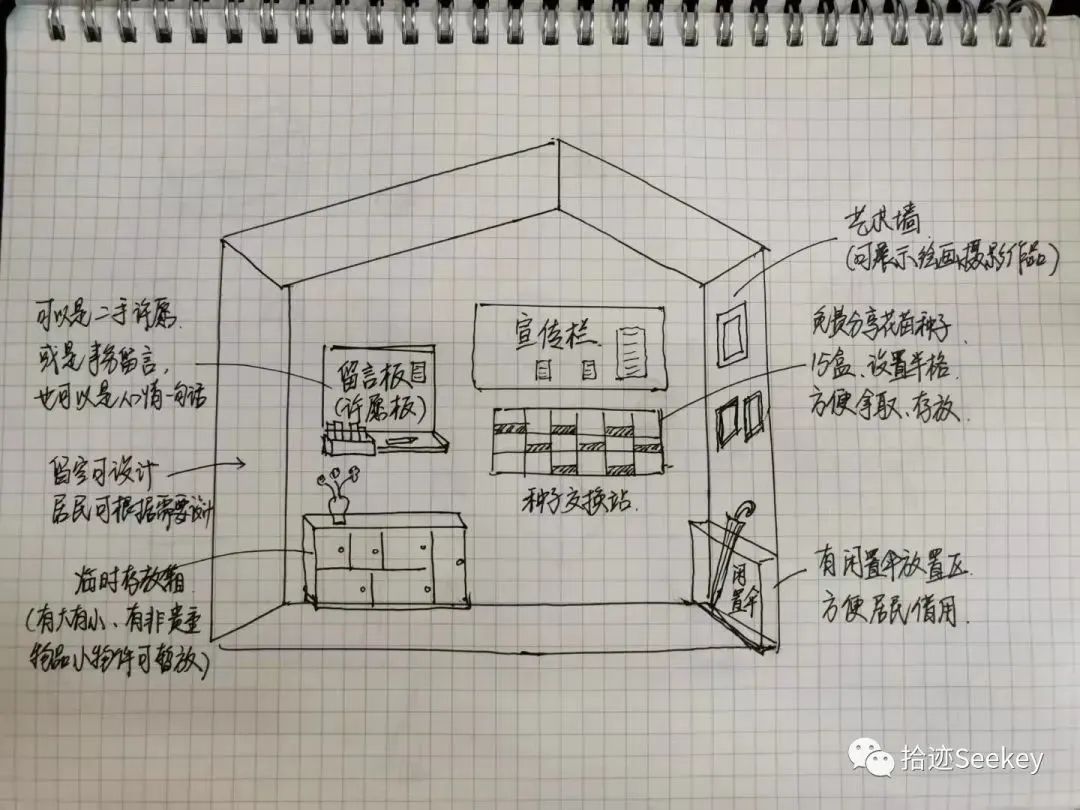 艺术墙
(可展示绘画、摄影作品)
可以是二手许愿
或是事务留言,
也可以是心情一句话
留言板
(许愿板)
宣传栏
免费分享花苗种子
15盒、设置半格
方便拿取、存放
留空可设计
居民可根据需要设计
种子交换站
临时存放箱
(有大有小、有非贵重
物品小物件可暂放)
闲
置
伞
有闲置伞放置区
方便居民借用
拾迹Seekey